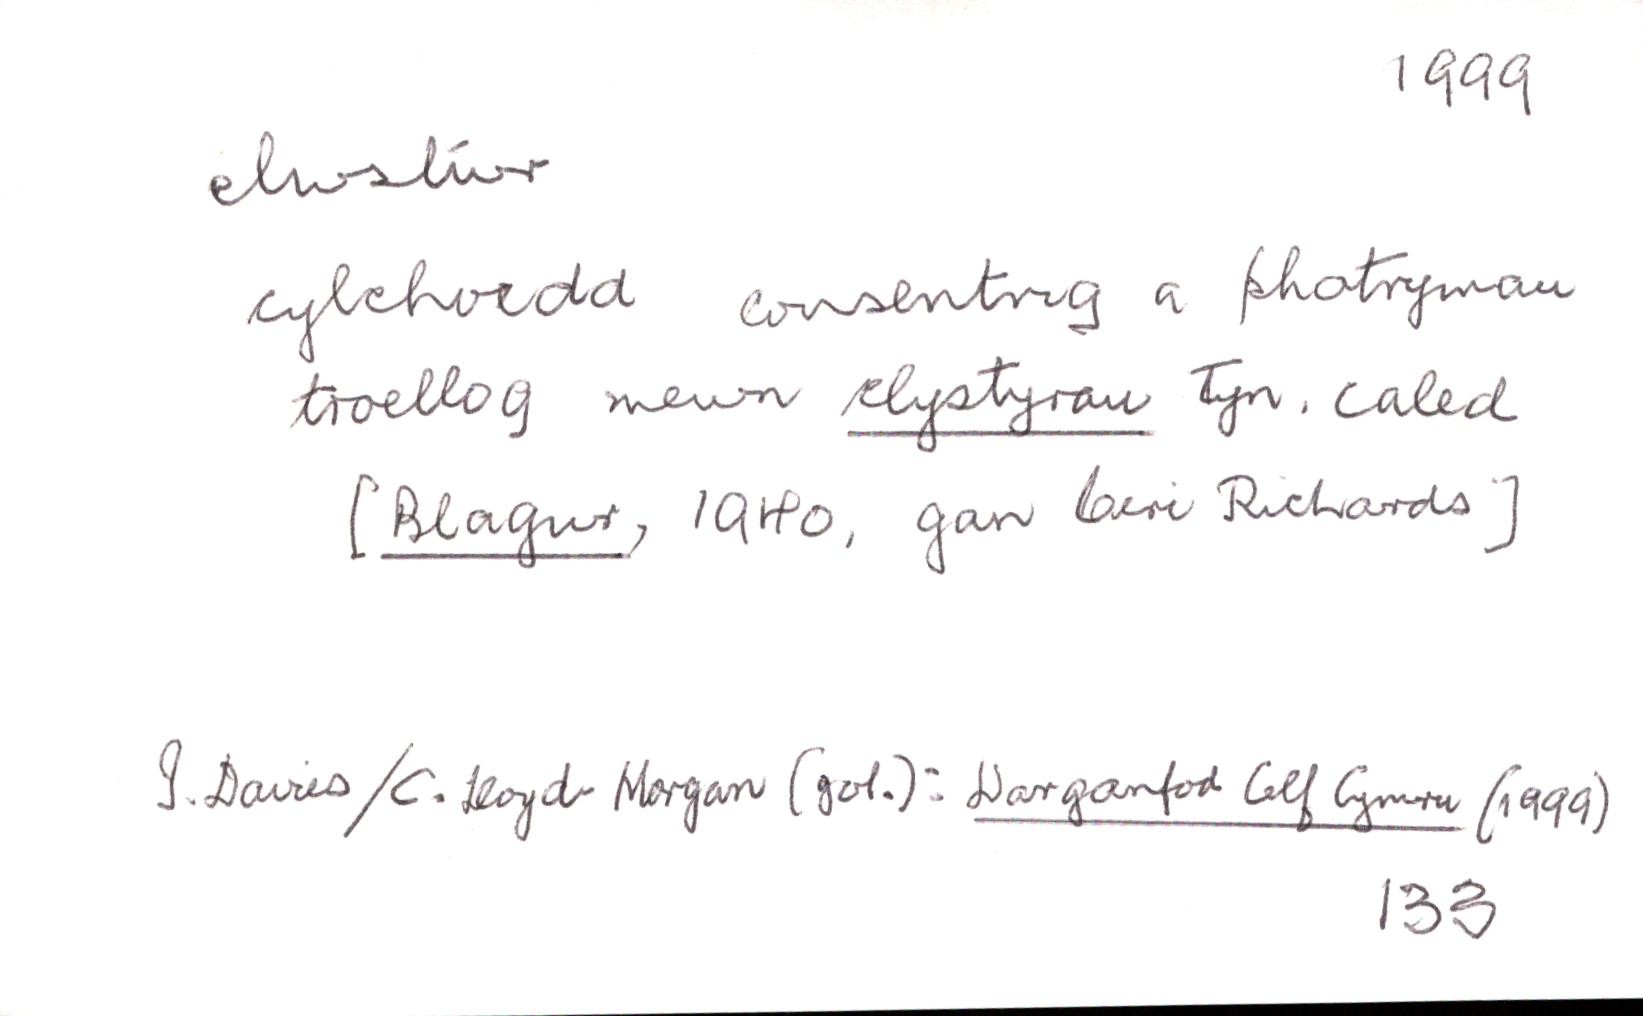 1999
clwstwr
cylchoedd consentrig a phatrymau
troellog mewn clystyrau tyn, caled
[Blagur, 1940, gan Ceri Richards]
I. Davies/C. Lloyd-Morgan (gol.): Darganfod Celf Cymru (1999)
133